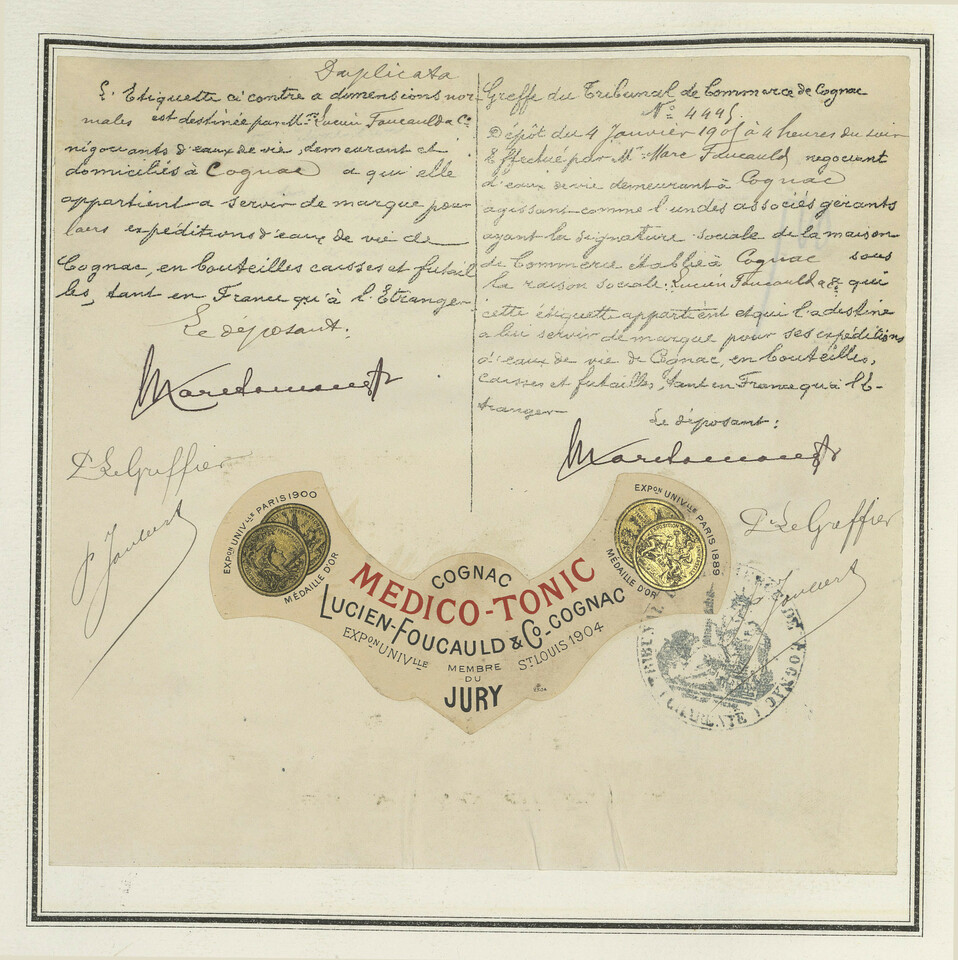 Duplicata
L' Etiquette ci contre a dimensions nor-
males est destinée par Mrs Lucien Foucauld & Co
négociants d'eaux de vie, demeurant et
domiciliés à Cognac a qui elle
appartient a servir de marque pour
leurs expéditions d'eaux de vie de
Cognac, en bouteilles caisses et futail
les, tant en France qu'à l'Etranger
Le déposant:
D Le Greffier
P Joubert
Greffe du Tribunal de Commerce de Cognac
No 4445
Dépôt du 4 Janvier 1905 à 4 heures du soir
Effectué par Mr Marc Foucauld negociant
d'eaux de vie demeurant à Cognac
agissant comme l'un des associés gérants
ayant la signature sociale de la maison
de Commerce établie à Cognac sous
la raison sociale: Lucien Foucauld & Co qui
cette étiquette appartient et qui l'a destine
a lui servir de marque pour ses expéditions
d'eaux de vie de Cognac, en bouteilles,
caisses et futailles, tant en France qu'à l'E-
tranger
Le déposant:
D Le Greffier
P Joubert
EXPon UNIVlle PARIS 1900
MÉDAILLE D'OR
EXPon UNIVlle PARIS 1889
MÉDAILLE D'OR
COGNAC
MEDICO-TONIC
LUCIEN-FOUCAULD & Co-COGNAC
EXPon UNIVlle St LOUIS 1904
MEMBRE
DU
JURY
TRIBUNAL DE COGNAC
(CHARENTE)